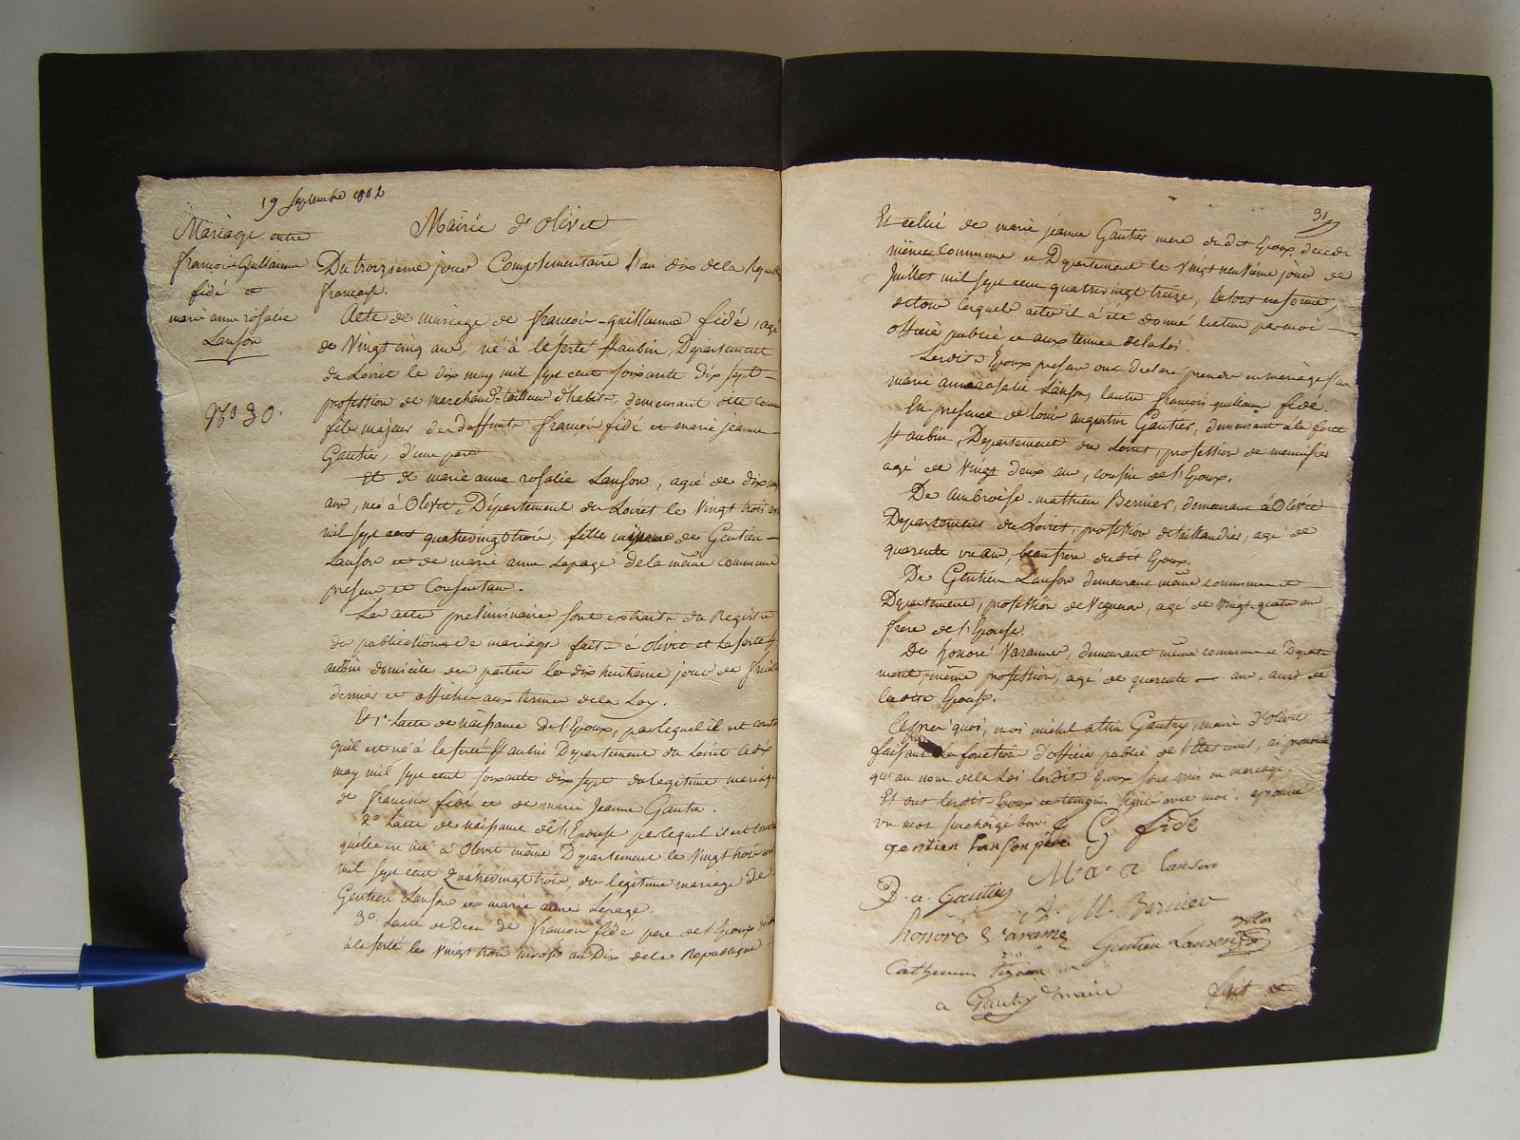 19 Septembre 1802
Mariage entre
françois Guillaume
fidé et
marie anne rosalie
Lanson
Mairie d'Olivet
Du troisieme jour Complementaire l'an dix de la Repub
française.
Acte de mariage de françois-guillaume fidé, agé
de Vingt cinq ans, né à la ferté St aubin, Departement
du Loiret le dix may mil sept cent soixante dix sept
profession de marchand-tailleur d'habits demeurant
fils majeur de deffunts françois fidé et marie jeanne
Gautier, d'une part
Et de marie anne rosalie Lanson, agée de dix
ans, née à Olivet, Département du Loiret le Vingt trois
mil sept cent quatrevingt trois, fille mineure de Gentien
Lanson et de marie anne Lepage de la même commune
present et Consentant.
Les actes preliminaires sont extraits du Registre
de publications de mariage faits à olivet et La ferté St
aubin domicile des parties le dix huitieme jour de
dernier et affichés aux termes de la Loy.
Et 1° L'acte de naissance de l'Epoux, par lequel il est const
qu'il est né à la ferté St aubin Departement du Loiret le dix
may mil sept cent soixante dix sept du legitime mariage
de françois fidé et de marie Jeanne Gautier.
2° L'acte de naissance de l'Epouse par lequel il est
qu'elle est née à Olivet même Departement le Vingt trois
mil sept cent Quatrevingt trois, du legitime mariage de
Gentien Lanson et marie anne Lepage.
3° L'acte de Deces de françois fidé pere de l'Epoux
à la ferté le Vingt trois nivose an Dix de la Republique
31
Et celui de marie jeanne Gautier mere du dit Epoux, decedé
même commune et Departement le Vingt neufieme jour de
Juillet mil sept cent quatrevingt treize, le tout en forme
de tous lesquels actes il a été donné lecture par moi
officier public et aux termes de la Loi.
Lesdits Epoux present ont declaré prendre en mariage l'un
marie anne rosalie Lanson, l'autre françois guillaume fidé.
En presence de louis augustin Gautier, demeurant à la ferté
St aubin, Departement du Loiret, profession de menuisier
agé de Vingt deux ans, cousin de l'Epoux.
De Ambroise-mathieu Bernier, demeurant à Olivet
Departement du Loiret, profession de taillandier, agé de
quarente un an, beaufrere du dit Epoux.
De Gentien Lanson demeurant même commune et
Departement, profession de Vigneron, agé de vingt quatre ans
frere de l'Epouse.
De honoré Varanne, demeurant même commune et Departe
ment, même profession, agé de quarente ans, ami de
la dite Epouse.
Après quoi, moi michel Gautry, maire d'olivet
faisant les fonctions d'officier public de l'Etat civil, ai prononcé
qu'au nom de la Loi lesdits Epoux sont unis en mariage.
Et ont lesdits Epoux et temoins signé avec moi. approuvé
un mot surchargé bon.
gentien Lanson père G fidé
M. a. r Lanson
Gautier
A. M. Bernier
honoré Varanne Gentien Lanson
Catherine
Gautry maire